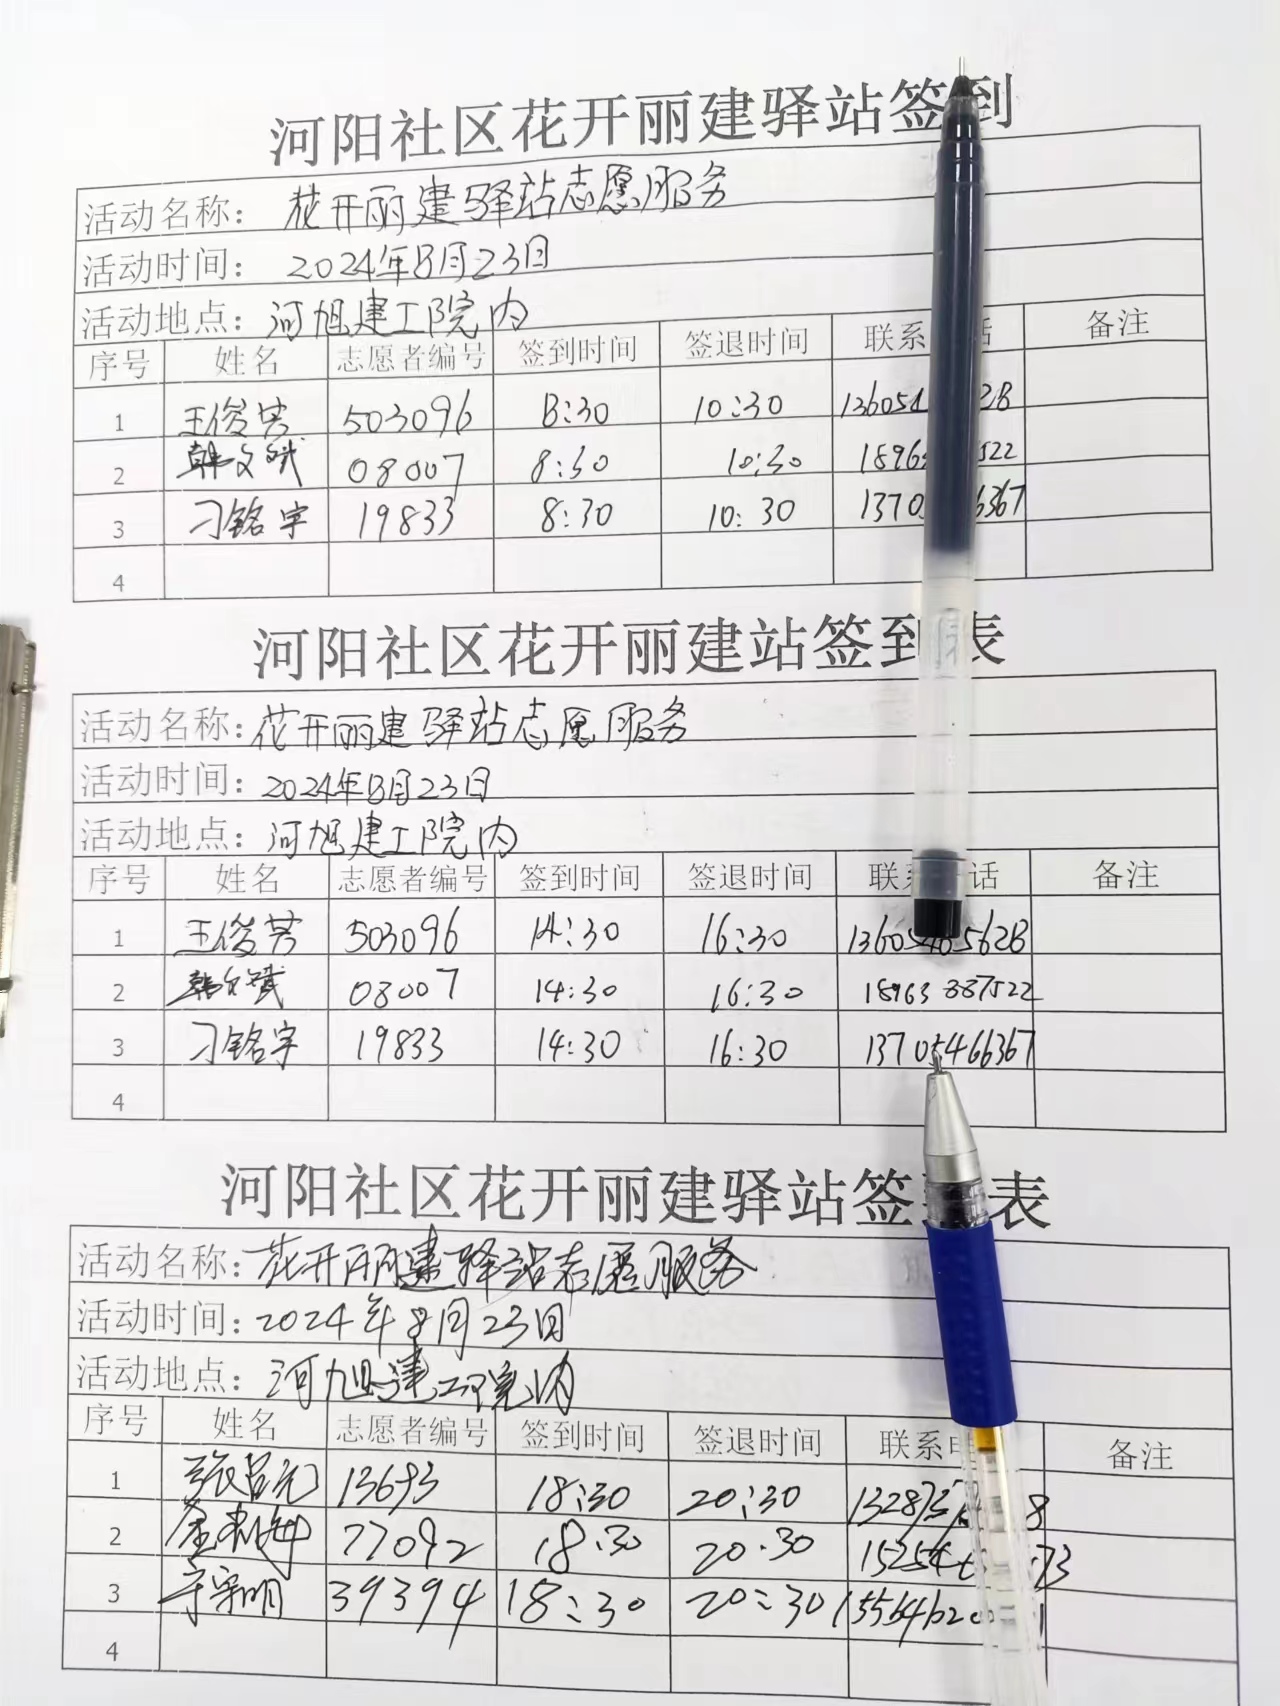 河阳社区花开丽建驿站签到
活动名称： 花开丽建驿站志愿服务
活动时间： 2024年8月23日
活动地点： 河旭建工院内
序号 姓名 志愿者编号 签到时间 签退时间 联系 话 备注
1 王俊芳 503096 8:30 10:30
2 韩文斌 08007 8:30 10:30
3 刁铭宇 19833 8:30 10:30
4
河阳社区花开丽建站签到表
活动名称： 花开丽建驿站志愿服务
活动时间： 2024年8月23日
活动地点： 河旭建工院内
序号 姓名 志愿者编号 签到时间 签退时间 联系 话 备注
1 王俊芳 503096 14:30 16:30 13605405628
2 韩文斌 08007 14:30 16:30 18963887522
3 刁铭宇 19833 14:30 16:30 13705466367
4
河阳社区花开丽建驿站签 表
活动名称： 花开丽建驿站志愿服务
活动时间： 2024年8月23日
活动地点： 河旭建工院内
序号 姓名 志愿者编号 签到时间 签退时间 联系电 备注
1 13693 18:30 20:30
2 77092 18:30 20:30
3 39394 18:30 20:30
4